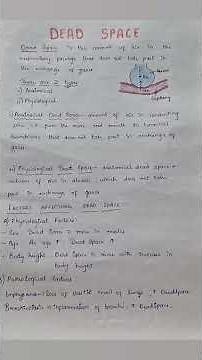 DEAD SPACE
Dead Space is the amount of air in the
respiratory passage that does not take part in
the exchange of gases
There are 2 types
i) Anatomical
ii) Physiological
i) Anatomical Dead Space - amount of air in conducting
zone from the nose and mouth to terminal
bronchioles that does not take part in exchange of
gases.
ii) Physiological Dead Space - anatomical dead space +
volume of air in alveoli which does not take
part in exchange of gases
FACTORS AFFECTING DEAD SPACE
Physiological Factors:
- Sex - Dead Space is more in males
- Age - As age ↑ Dead Space ↑
- Body height - Dead Space is more with increase in
body height
Pathological factors:
Emphysema - loss of wall of lungs, ↑ DeadSpace
Bronchiectasis - inflammation of bronchi, ↑ DeadSpace